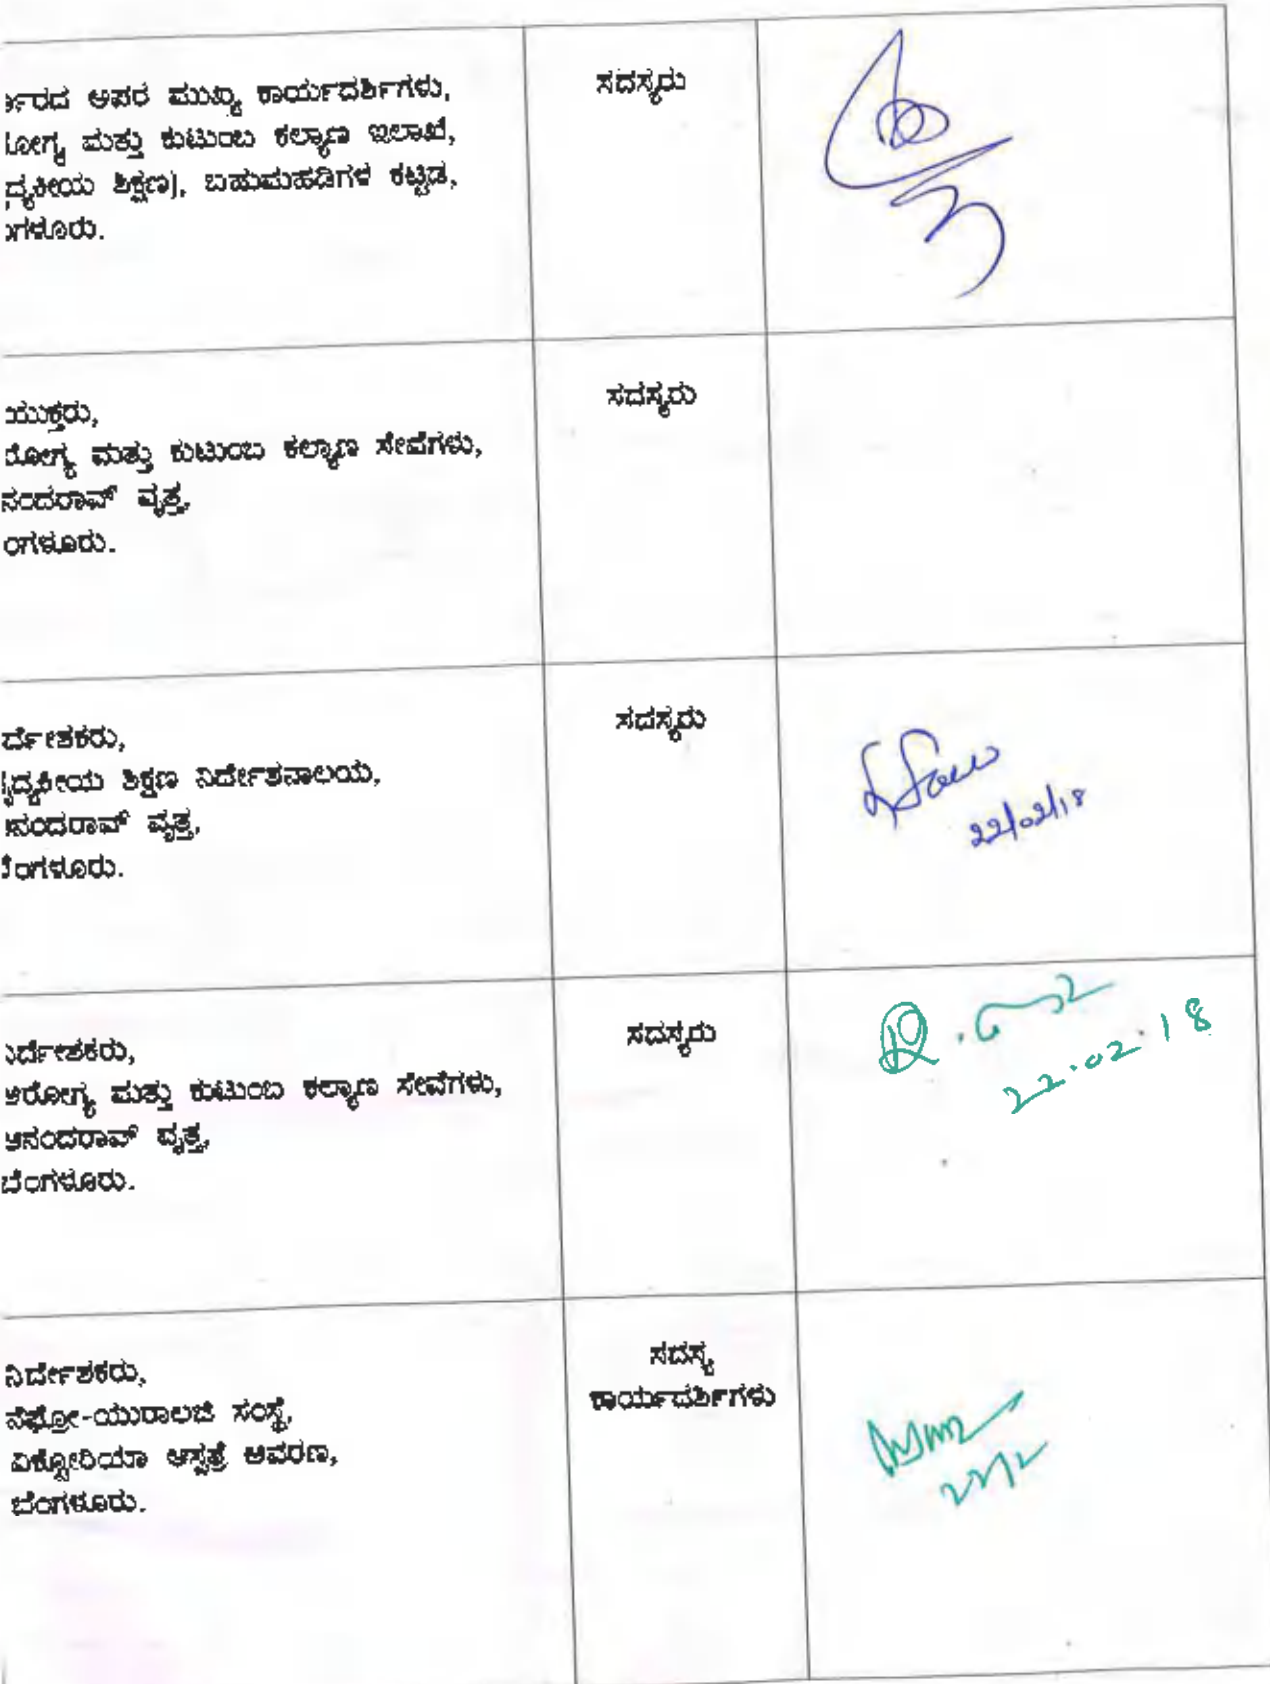 ರ್ಕಾರದ ಅಪರ ಮುಖ್ಯ ಕಾರ್ಯದರ್ಶಿಗಳು,
ರೋಗ್ಯ ಮತ್ತು ಕುಟುಂಬ ಕಲ್ಯಾಣ ಇಲಾಖೆ,
ದ್ಯಕೀಯ ಶಿಕ್ಷಣ), ಬಹುಮಹಡಿಗಳ ಕಟ್ಟಡ,
ಂಗಳೂರು.
ಸದಸ್ಯರು
ಯುಕ್ತರು,
ರೋಗ್ಯ ಮತ್ತು ಕುಟುಂಬ ಕಲ್ಯಾಣ ಸೇವೆಗಳು,
ನಂದರಾವ್ ವೃತ್ತ,
ಂಗಳೂರು.
ಸದಸ್ಯರು
ರ್ದೇಶಕರು,
ದ್ಯಕೀಯ ಶಿಕ್ಷಣ ನಿರ್ದೇಶನಾಲಯ,
ನಂದರಾವ್ ವೃತ್ತ,
ಬೆಂಗಳೂರು.
ಸದಸ್ಯರು
22/02/18
ನಿರ್ದೇಶಕರು,
ಆರೋಗ್ಯ ಮತ್ತು ಕುಟುಂಬ ಕಲ್ಯಾಣ ಸೇವೆಗಳು,
ಆನಂದರಾವ್ ವೃತ್ತ,
ಬೆಂಗಳೂರು.
ಸದಸ್ಯರು
22.02.18
ನಿರ್ದೇಶಕರು,
ನೆಫ್ರೋ-ಯುರಾಲಜಿ ಸಂಸ್ಥೆ,
ವಿಕ್ಟೋರಿಯಾ ಆಸ್ಪತ್ರೆ ಆವರಣ,
ಬೆಂಗಳೂರು.
ಸದಸ್ಯ
ಕಾರ್ಯದರ್ಶಿಗಳು
22/2